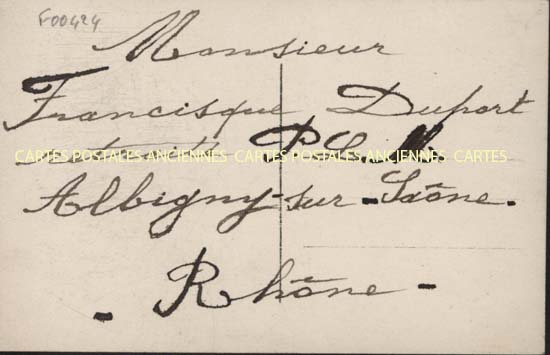 F00424
Monsieur
Francisque Duport
retraité P. L. M.
CARTES POSTALES ANCIENNES CARTES POSTALES ANCIENNES CARTES
Albigny-sur-Saône-
- Rhône -